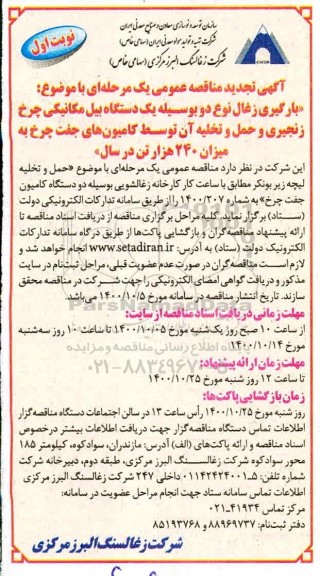 نوبت اول
سازمان توسعه و نوسازی معادن و صنایع معدنی ایران
شرکت تهیه و تولید مواد معدنی ایران (سهامی خاص)
شرکت زغالسنگ البرز مرکزی (سهامی خاص)
آگهی تجدید مناقصه عمومی یک مرحله‌ای با موضوع:
«بارگیری زغال نوع دو بوسیله یک دستگاه بیل مکانیکی چرخ
زنجیری و حمل و تخلیه آن توسط کامیون‌های جفت چرخ به
میزان ۲۴۰ هزار تن در سال»
این شرکت در نظر دارد مناقصه عمومی یک مرحله‌ای با موضوع «حمل و تخلیه
لیچه زیر بونکر مطابق با ساعت کار کارخانه زغالشویی بوسیله دو دستگاه کامیون
جفت چرخ» به شماره ۱۴۰۰/۲۰۷ را از طریق سامانه تدارکات الکترونیکی دولت
(ستاد) برگزار نماید. کلیه مراحل برگزاری مناقصه از دریافت اسناد مناقصه تا
ارائه پیشنهاد مناقصه‌گران و بازگشایی پاکت‌ها از طریق درگاه سامانه تدارکات
الکترونیک دولت (ستاد) به آدرس: www.setadiran.ir انجام خواهد شد و
لازم است مناقصه‌گران در صورت عدم عضویت قبلی، مراحل ثبت‌نام در سایت
مذکور و دریافت گواهی امضای الکترونیکی را جهت شرکت در مناقصه محقق
سازند. تاریخ انتشار مناقصه در سامانه مورخ ۱۴۰۰/۱۰/۵ می‌باشد.
مهلت زمانی دریافت اسناد مناقصه از سایت:
از ساعت ۱۰ صبح روز یک‌شنبه مورخ ۱۴۰۰/۱۰/۰۵ تا ساعت ۱۰ روز سه‌شنبه
مورخ ۱۴۰۰/۱۰/۱۴
مهلت زمان ارائه پیشنهاد:
تا ساعت ۱۲ روز شنبه مورخ ۱۴۰۰/۱۰/۲۵
زمان بازگشایی پاکت‌ها:
روز شنبه مورخ ۱۴۰۰/۱۰/۲۵ رأس ساعت ۱۳ در سالن اجتماعات دستگاه مناقصه‌گزار
اطلاعات تماس دستگاه مناقصه‌گزار جهت دریافت اطلاعات بیشتر درخصوص
اسناد مناقصه و ارائه پاکت‌های (الف) آدرس: مازندران، سوادکوه، کیلومتر ۱۸۵
محور سوادکوه شرکت زغالسنگ البرز مرکزی، طبقه دوم، دبیرخانه شرکت
شماره تلفن: ۵-۰۱۱۴۲۴۲۴۰۰۱ داخلی ۲۴۷ شرکت زغالسنگ البرز مرکزی
اطلاعات تماس سامانه ستاد جهت انجام مراحل عضویت در سامانه:
مرکز تماس ۴۱۹۳۴-۰۲۱
دفتر ثبت‌نام: ۸۸۹۶۹۷۳۷ و ۸۵۱۹۳۷۶۸
شرکت زغالسنگ البرز مرکزی